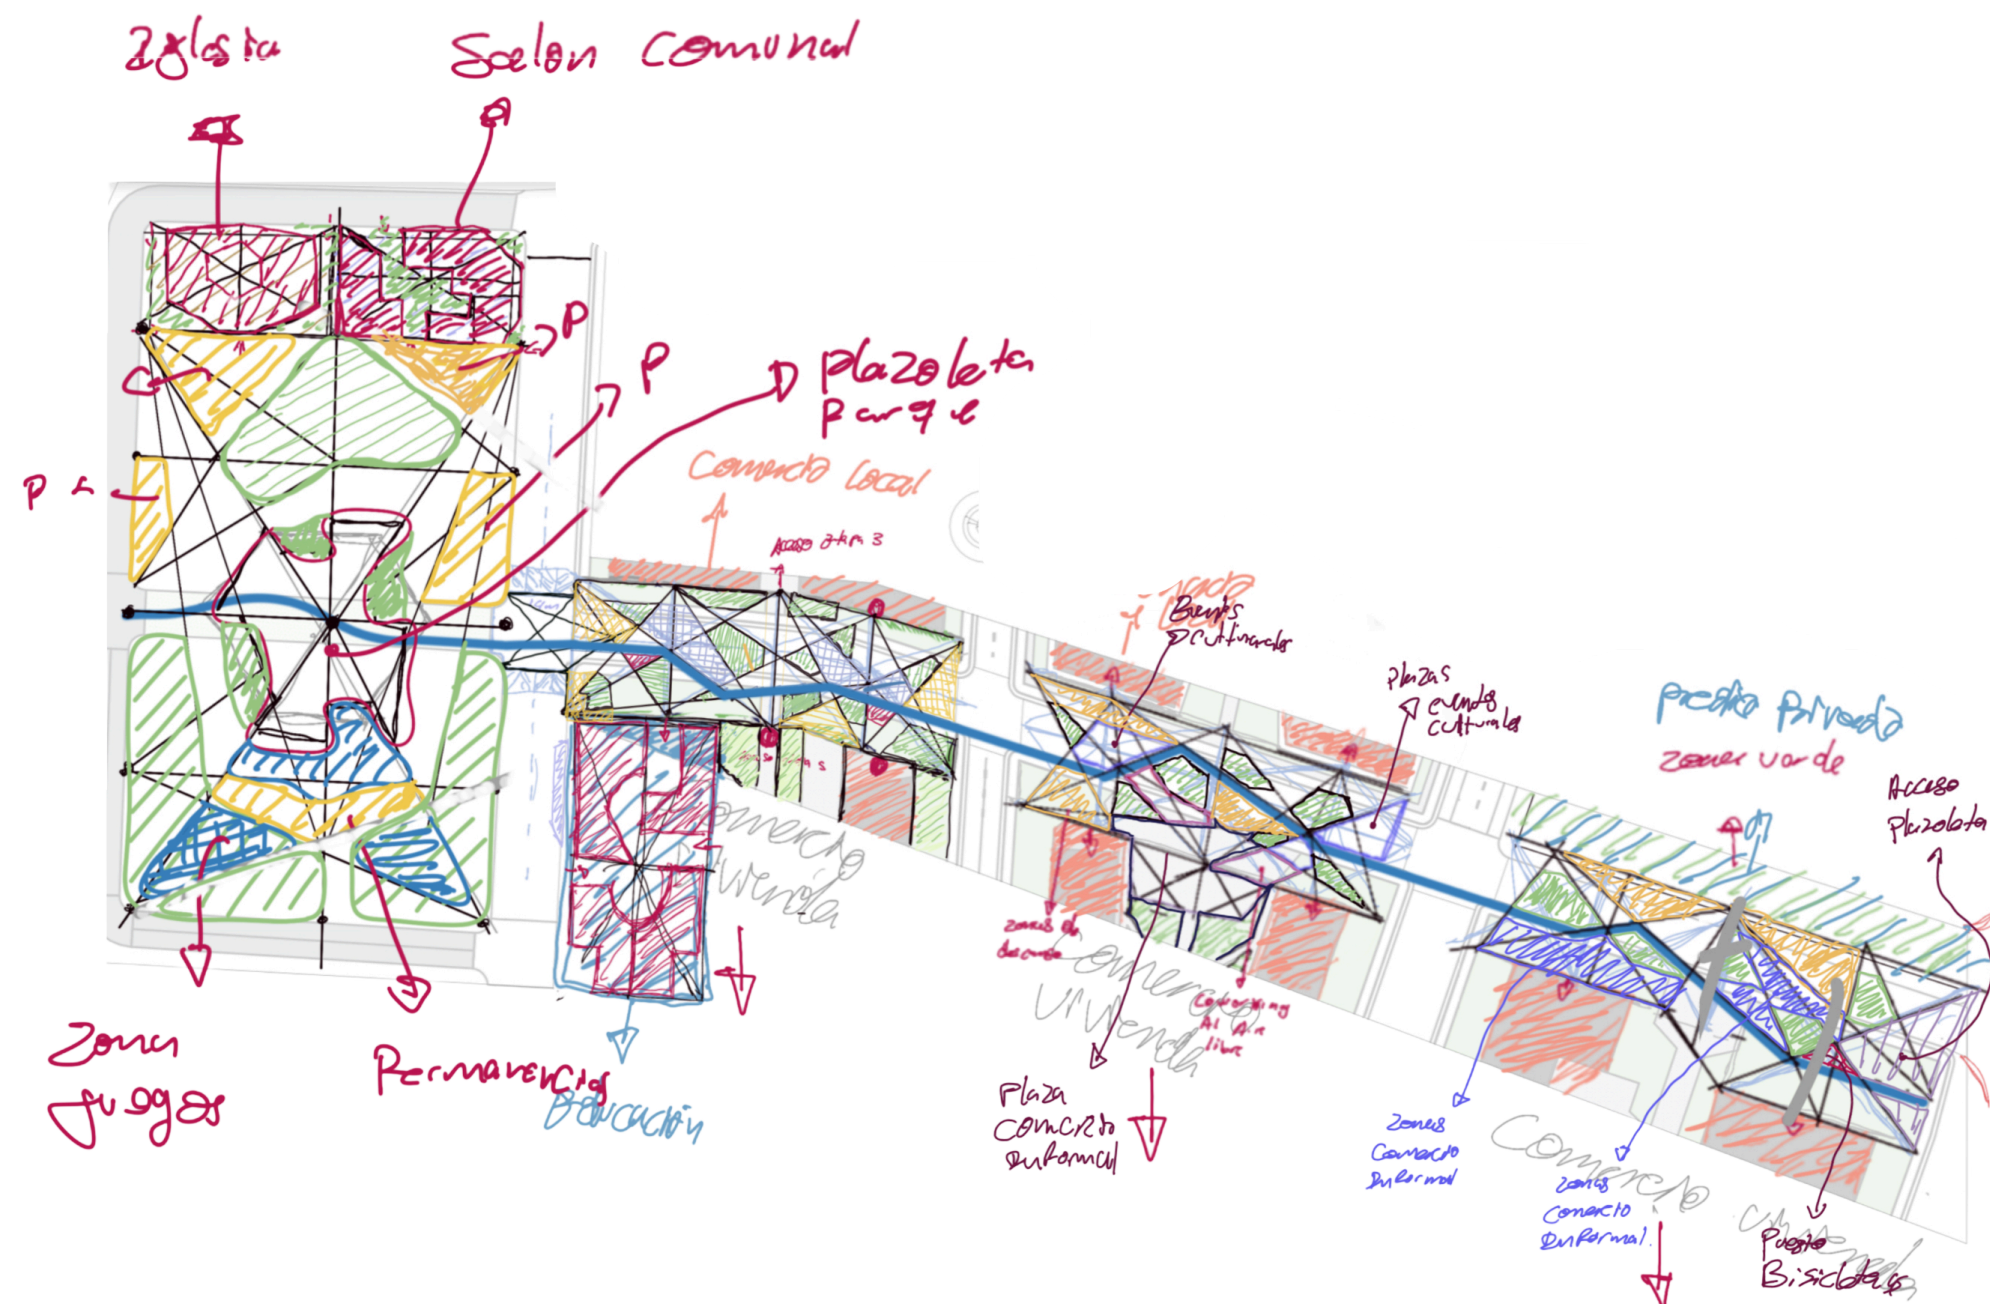 Iglesia
Salon Comunal
P
P
Plazoleta
Parque
P
Comercio Local
Acceso etapa 3
Bienes
culturales
Plazas
eventos
culturales
Predio Privado
Zona verde
Acceso
plazoleta
Comercio
vivienda
Zonas de
descanso
Comercio
Vivienda
Coworking
Al Aire
libre
Zona
Juegos
Permanencias
Educación
Plaza
comercio
informal
Zonas
Comercio
informal
Zonas
Comercio
informal.
Comercio
vivienda
Puesto
Bisicletas